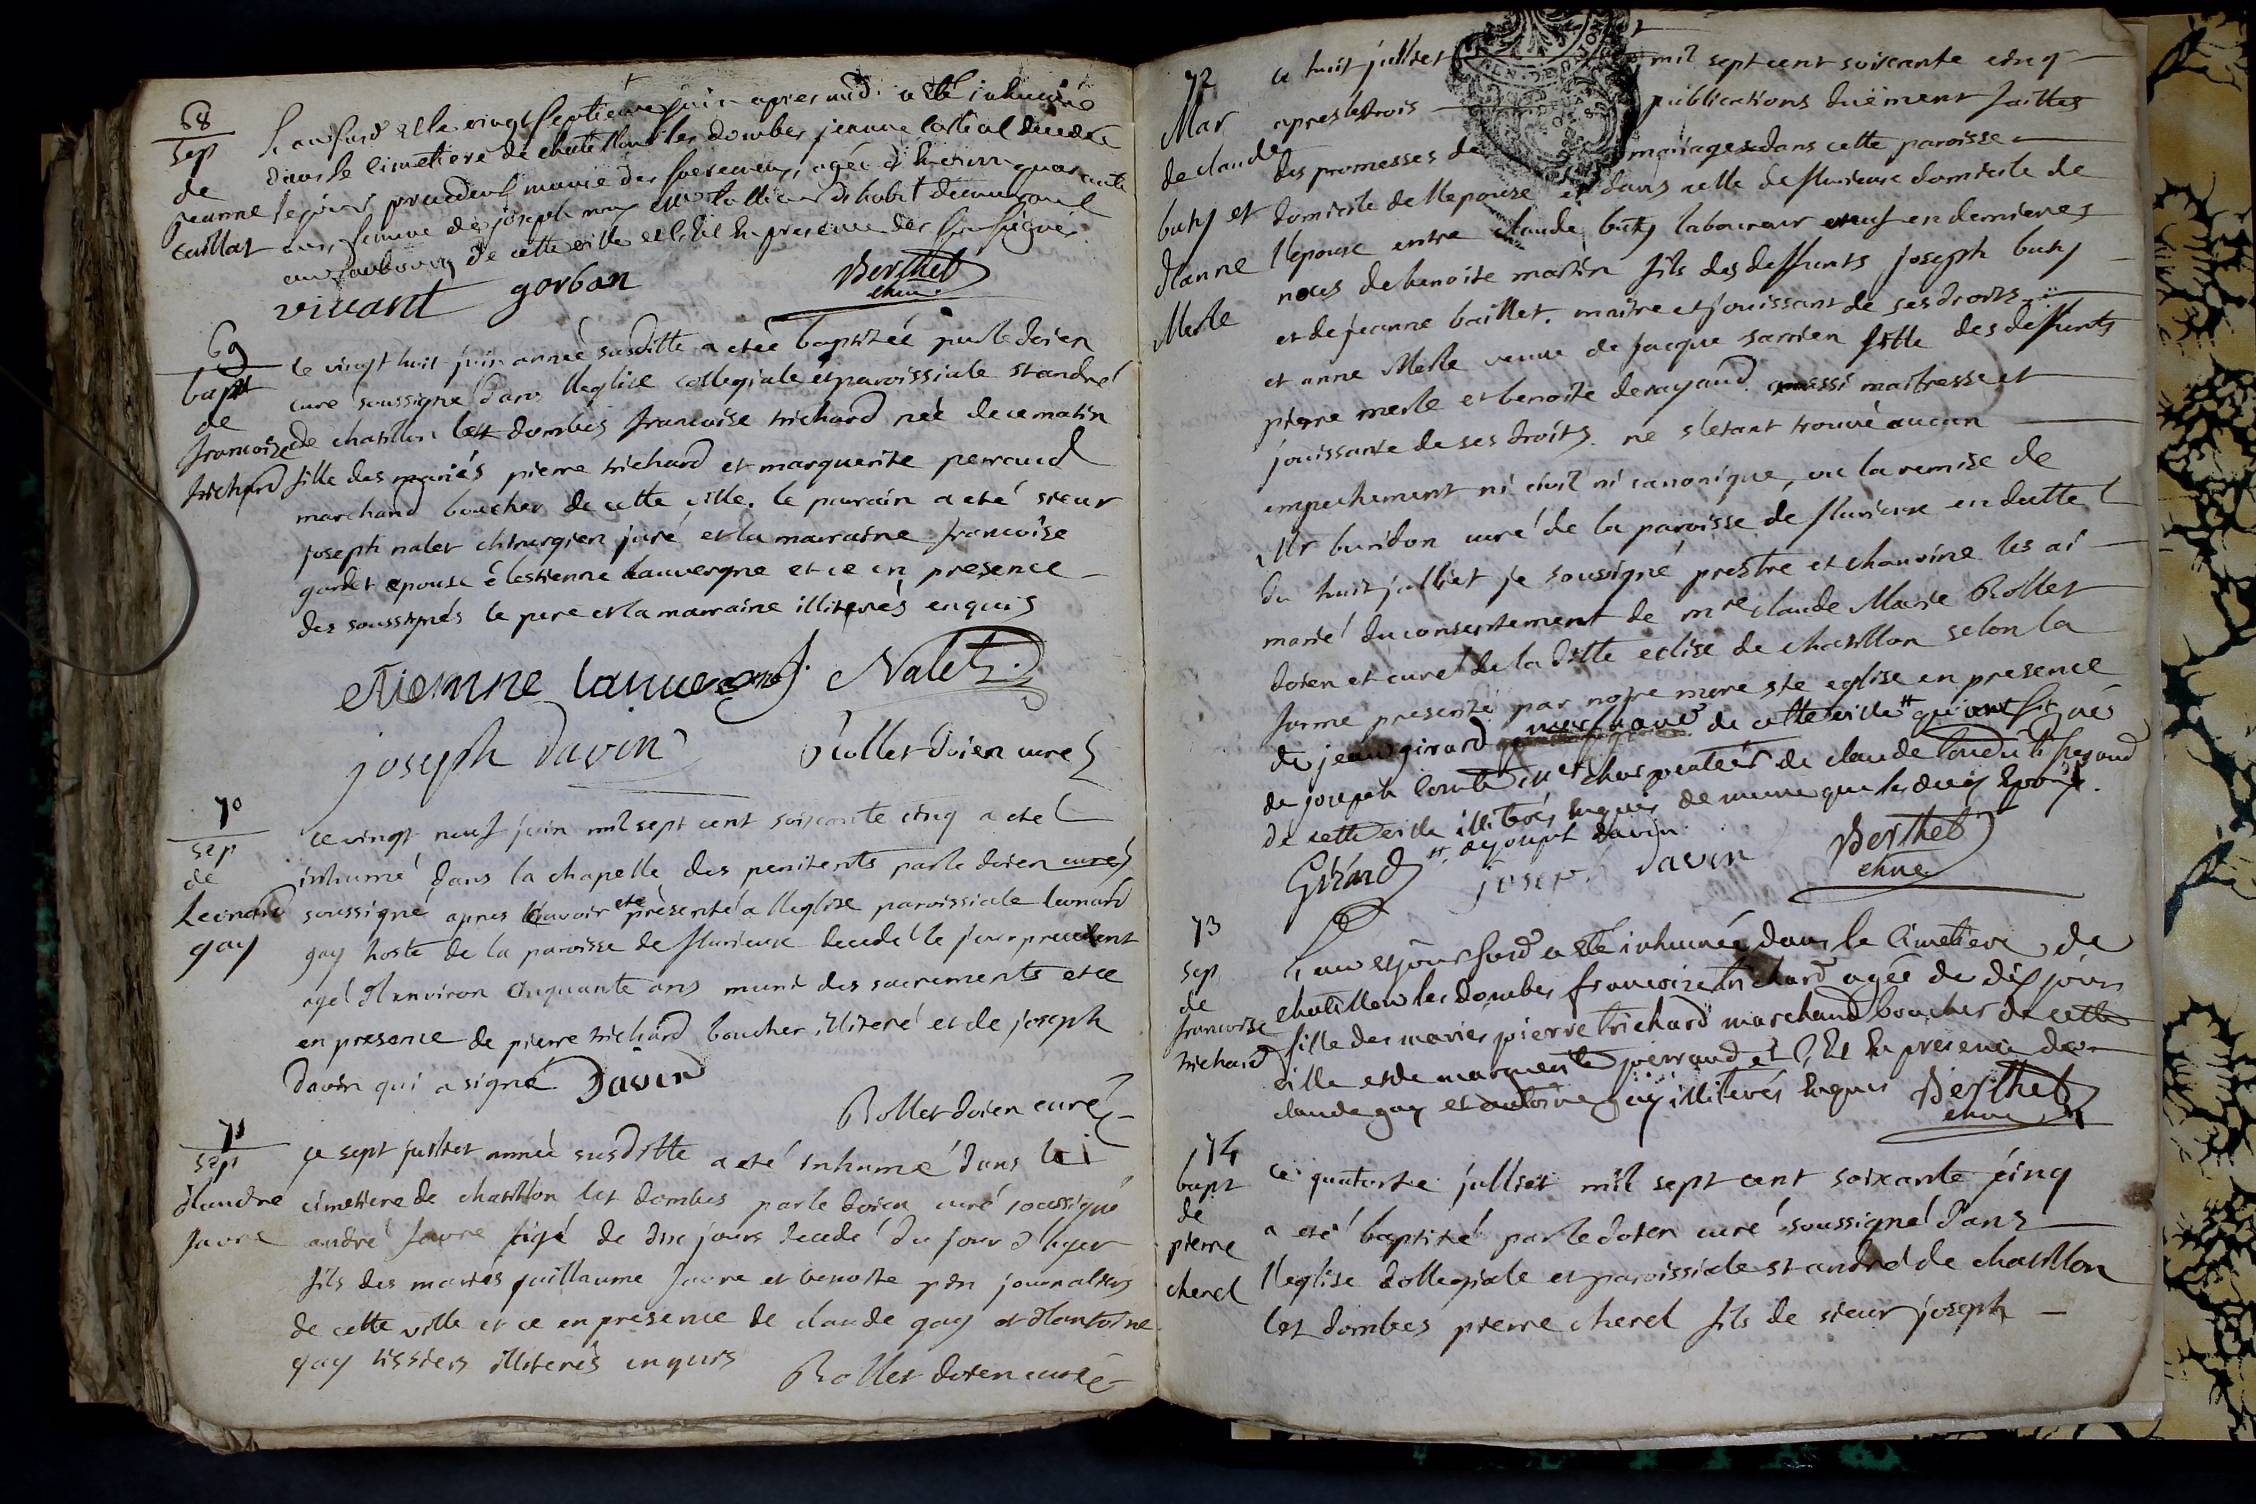 68
sep
de
jeanne
caillat
L'an susd et le vingt septieme juin apres midi a été inhumée
dans le cimetiere de chatillon les dombes jeanne decedée
le jour precedent munie des sacremens, agée d'environ quarante
ans, femme de joseph
au fauxbourg de cette ville et ce en presence des soussignés
vivant gorban Berthet
chne
69
bapt
de
francoise
trichard
le vingt huit juin anneé susditte a eteé baptizéé par le doien
curé soussigné dans l'leglise collegiale et paroissiale st andré
de chatillon lest dombes francoise trichard neé de ce matin
fille des mariés pierre trichard et marguerite perraud
marchand boucher de cette ville. le parrain a eté sieur
joseph nalet chirurgien juré et la marraine francoise
gardet epouse é lestienne lauvergne et ce en presence
des soussignés le pere et la marraine illiterés enquis
etiemne lauvergne Nalet
joseph Davin Rollet doien curé
70
sep
de
Leonard
gay
ce vingt neuf juin mil sept cent soixante cinq a eté
inhumé dans la chapelle des penitents par le doien curé
soussigné apres lavoir eté présenté a lleglise paroissiale leonard
gay hoste de la paroisse de flurieux decedé le jour precedent
agé denviron cinquante ans muni des sacrements et ce
en presence de pierre trichard boucher illiteré et de joseph
davin qui a signé Davin
Rollet doien curé
71
sep
dandré
favre
ce sept juillet anneé susditte a eté inhumé dans le
cimetiere de chatillon lest dombes par le doien curé soussigné
andré favre agé de dix jours decedé du jour d'hyer
fils des mariés guillaume favre et benoite pin journaliers
de cette ville et ce en presence de claude gay et dantoine
gay tissiers illiterés enquis
Rollet doien curé
72
Mar
de claude
buty et
danne
Merle
ce huit juillet mil sept cent soixante cinq
apres les trois publications duëment faittes
des promesses de mariages dans cette paroisse
domicile de llepouse et dans celle de flurieux domicile de
llepoux entre claude buty laboureur veuf en dernieres
noces de benoite martin fils des deffunts joseph buty
et de jeanne baillet. maitre et jouissant de ses droits
et anne Merle veuve de jacque sarrien fille des deffunts
pierre merle et benoite derayaud. aussi maitresse et
jouissante de ses droits. ne sletant trouvé aucun
empechement ni civil ni canonique, vu la remise de
Mr buridon curé de la paroisse de flurieux en datte
du huit juillet je soussigné prestre et chanoine les ai
marié du consentement de mre claude Marie Rollet
doien et curé de la ditte eclise de chatillon selon la
forme presenté par notre mere ste eglise en presence
de jean girard de cette ville qui ont signés
de joseph comte charpentier de claude
de cette ville illiterés enquis de meme que les deux epoux.
et joseph davin
Girard joseph davin Berthet
chne
73
sep
de
francoise
trichard
L'an et jour susd a été inhumée dans le cimetiere de
chatillon les dombes francoise trichard agée de dix jours
fille des mariés pierre trichard marchand boucher de cette
ville et de marguerite perraud et ce en presence de
claude gay et antoine gay illiterés enquis Berthet
chne
74
bapt
de
pierre
cherel
ce quatorze juillet mil sept cent soixante cinq
a eté baptisé par le doien curé soussigné dans
lleglise collegiale et paroissiale st andré de chatillon
lest dombes pierre cherel fils de sieur joseph